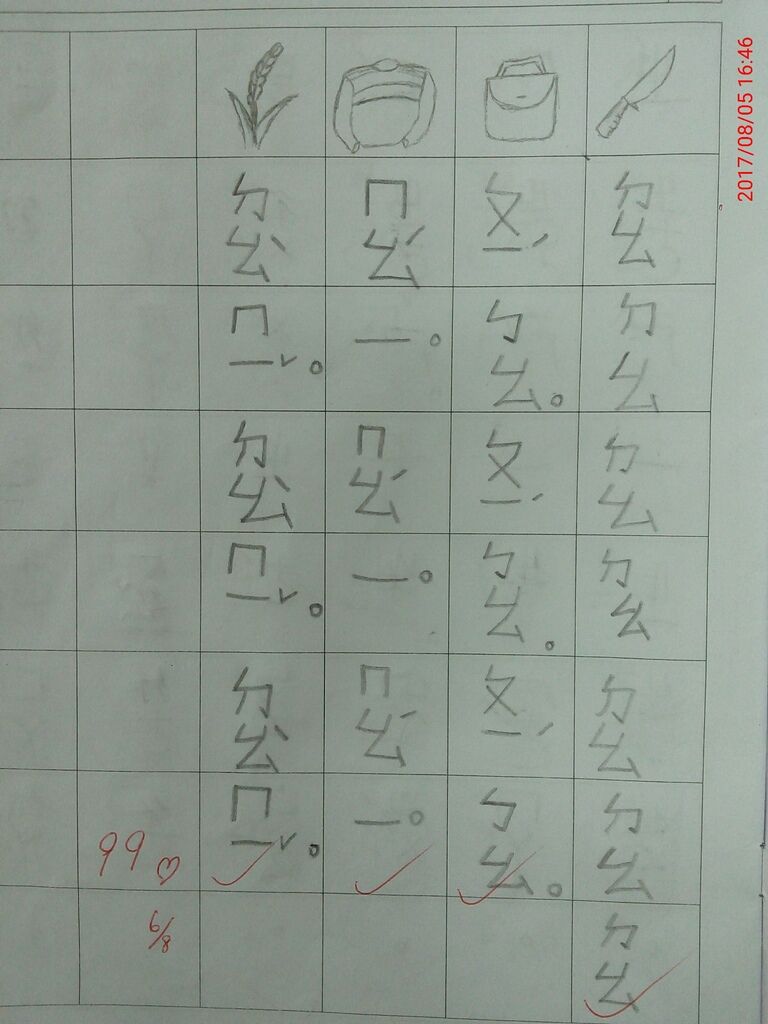 ㄉㄠ ㄉㄠ ㄉㄠ ㄉㄠ ㄉㄠ ㄉㄠ ㄉㄠ
ㄆㄧˊ ㄅㄠ。ㄆㄧˊ ㄅㄠ。ㄆㄧˊ ㄅㄠ。
ㄇㄠˊ ㄧ。ㄇㄠˊ ㄧ。ㄇㄠˊ ㄧ。
ㄉㄠˋ ㄇㄧˇ。ㄉㄠˋ ㄇㄧˇ。ㄉㄠˋ ㄇㄧˇ。
99
6/8
2017/08/05 16:46